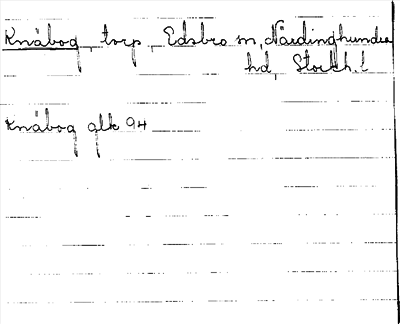 Knåbog torp, Edsbro sn, Närdinghundra
hd, Stockh. l
Knåbog glk 94